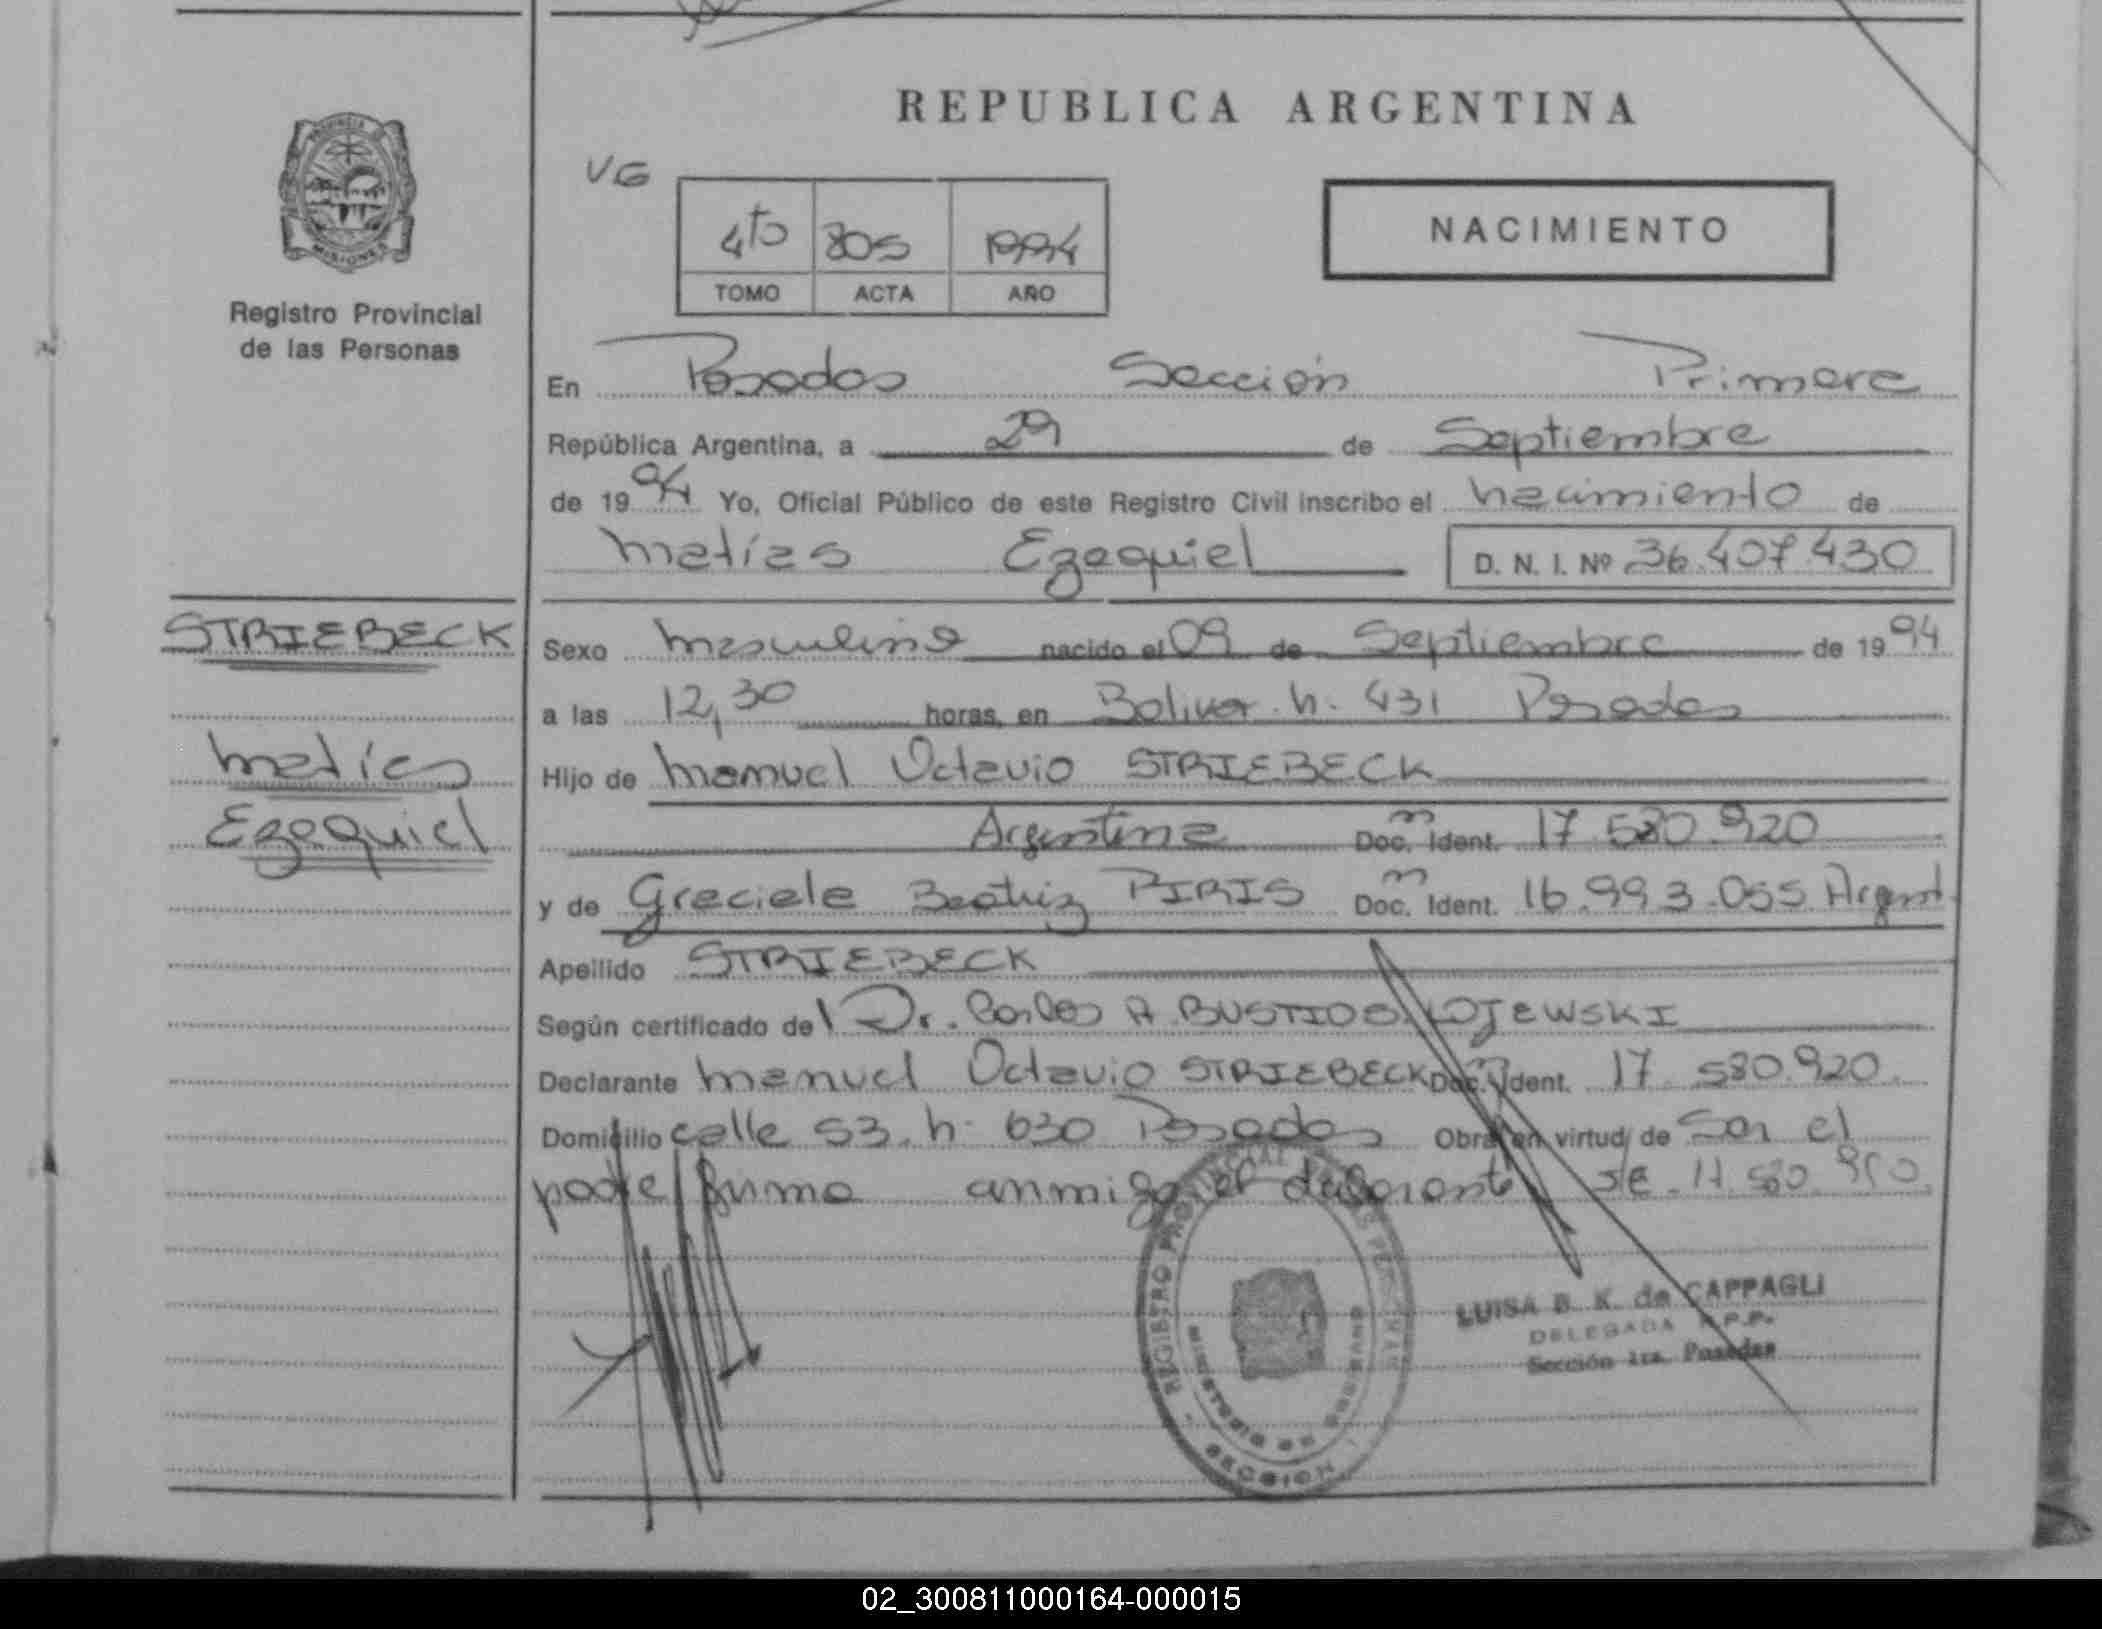 REPUBLICA ARGENTINA
PROVINCIA DE
MISIONES
Registro Provincial
de las Personas
VG
4to 805 1994
TOMO ACTA AÑO
NACIMIENTO
En Posadas Sección Primera
República Argentina, a 29 de Septiembre
de 1994 Yo, Oficial Público de este Registro Civil inscribo el nacimiento de
Matías Ezequiel D. N. I. Nº 36.407.430
STRIEBECK
Matías
Ezequiel
Sexo Masculino nacido el 09 de Septiembre de 1994
a las 12,30 horas, en Bolivar. h. 431 Posadas
Hijo de Manuel Octavio STRIEBECK
Argentina Doc. Ident. 17.580.920
y de Graciela Beatriz PIRIS Doc. Ident. 16.993.055 Argent
Apellido STRIEBECK
Según certificado de Dr. Carlos A BUSTIOS LOJEWSKI
Declarante Manuel Octavio STRIEBECK Doc. Ident. 17.580.920.
Domicilio calle 53. h. 630 Posadas Obra en virtud de Ser el
padre firma conmigo el declarante
REGISTRO PROVINCIAL DE LAS PERSONAS
MINISTERIO DE GOBIERNO
SECCION
LUISA B. K. de CAPPAGLI
DELEGADA R.P.P.
Sección 1ra. Posadas
02_300811000164-000015